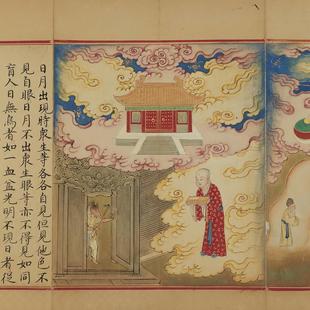 日月出現時衆生等各各自見但見他色不
見自眼日月不出衆生眼等亦不得見如同
盲人日無烏者如一血盆光明不現日者從